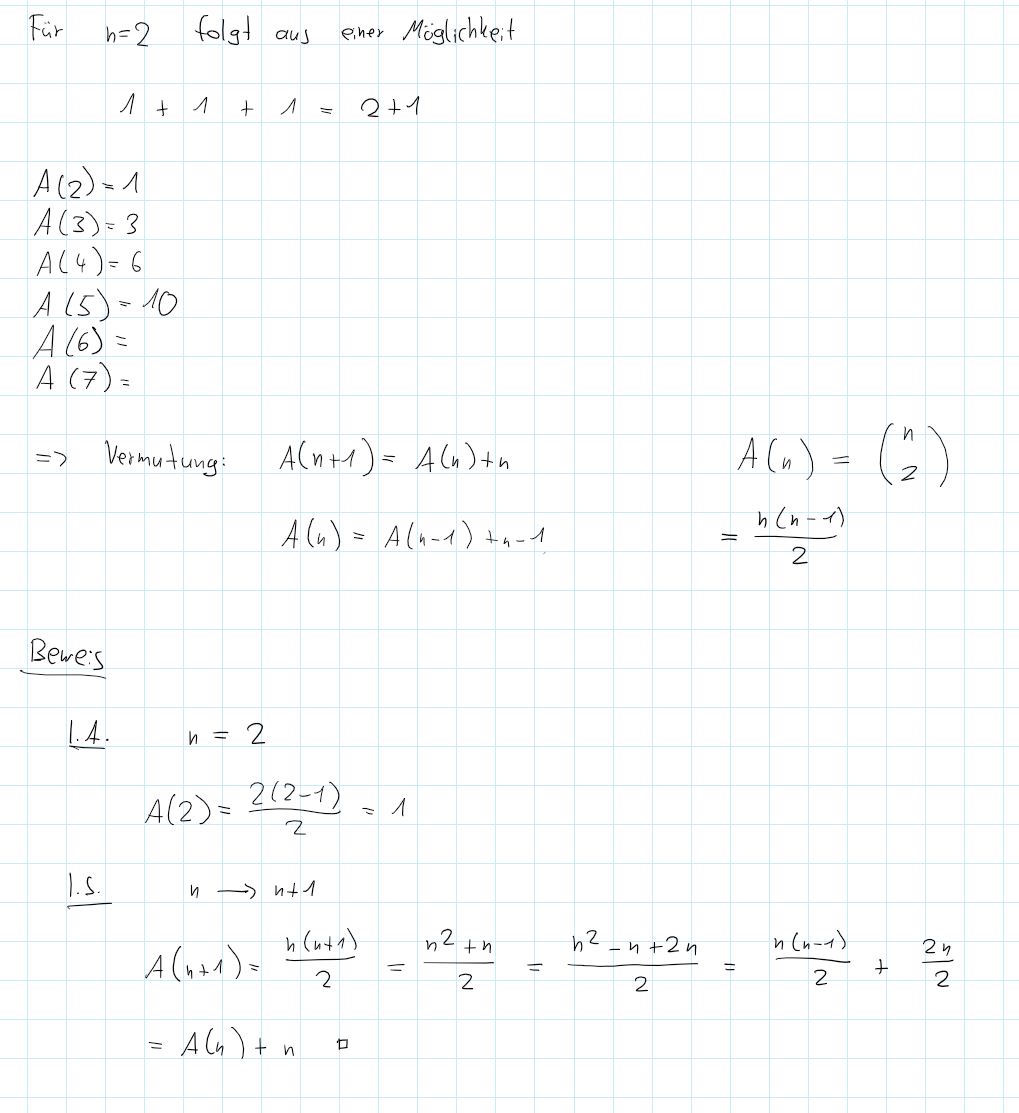 Für n=2 folgt aus einer Möglichkeit
1 + 1 + 1 = 2+1
A(2) = 1
A(3) = 3
A(4) = 6
A(5) = 10
A(6) =
A(7) =
=> Vermutung: A(n+1) = A(n)+n A(n) = (n 2)
A(n) = A(n-1) +n-1 = n(n-1)/2
Beweis
I.A. n = 2
A(2) = 2(2-1)/2 = 1
I.S. n → n+1
A(n+1) = n(n+1)/2 = n²+n/2 = n²-n+2n/2 = n(n-1)/2 + 2n/2
= A(n) + n □